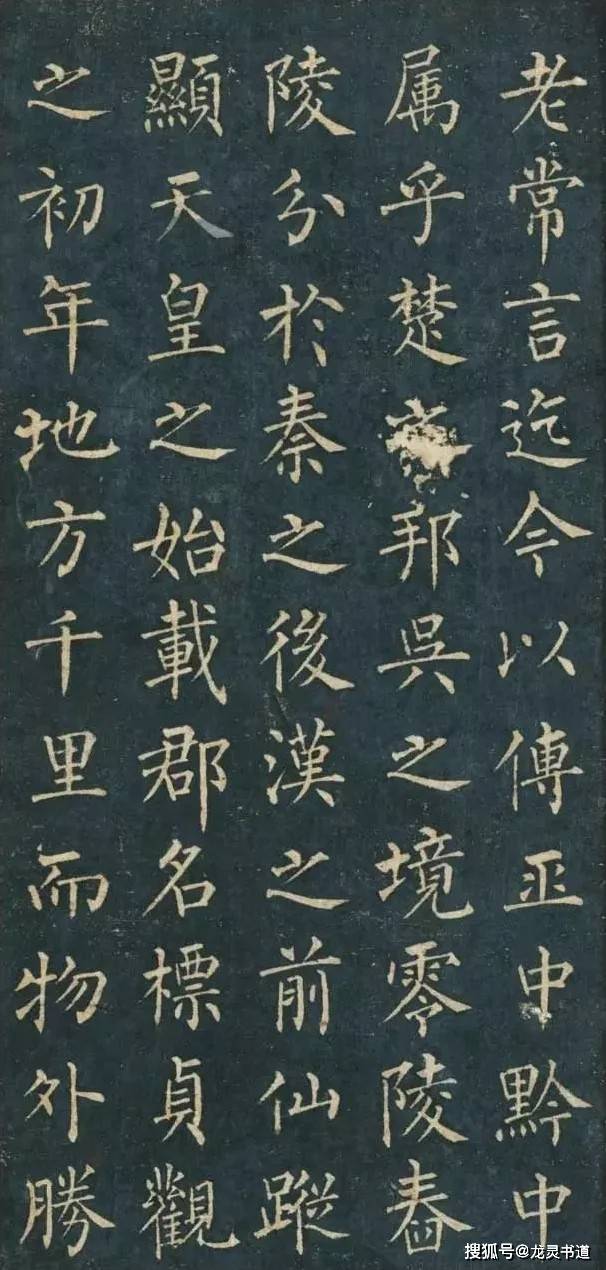 老常言迄今以傳巫中黔中
属乎楚之邦吳之境零陵舂
陵分於秦之後漢之前仙蹤
顯天皇之始載郡名標貞觀
之初年地方千里而物外勝
搜狐号@龙灵书道